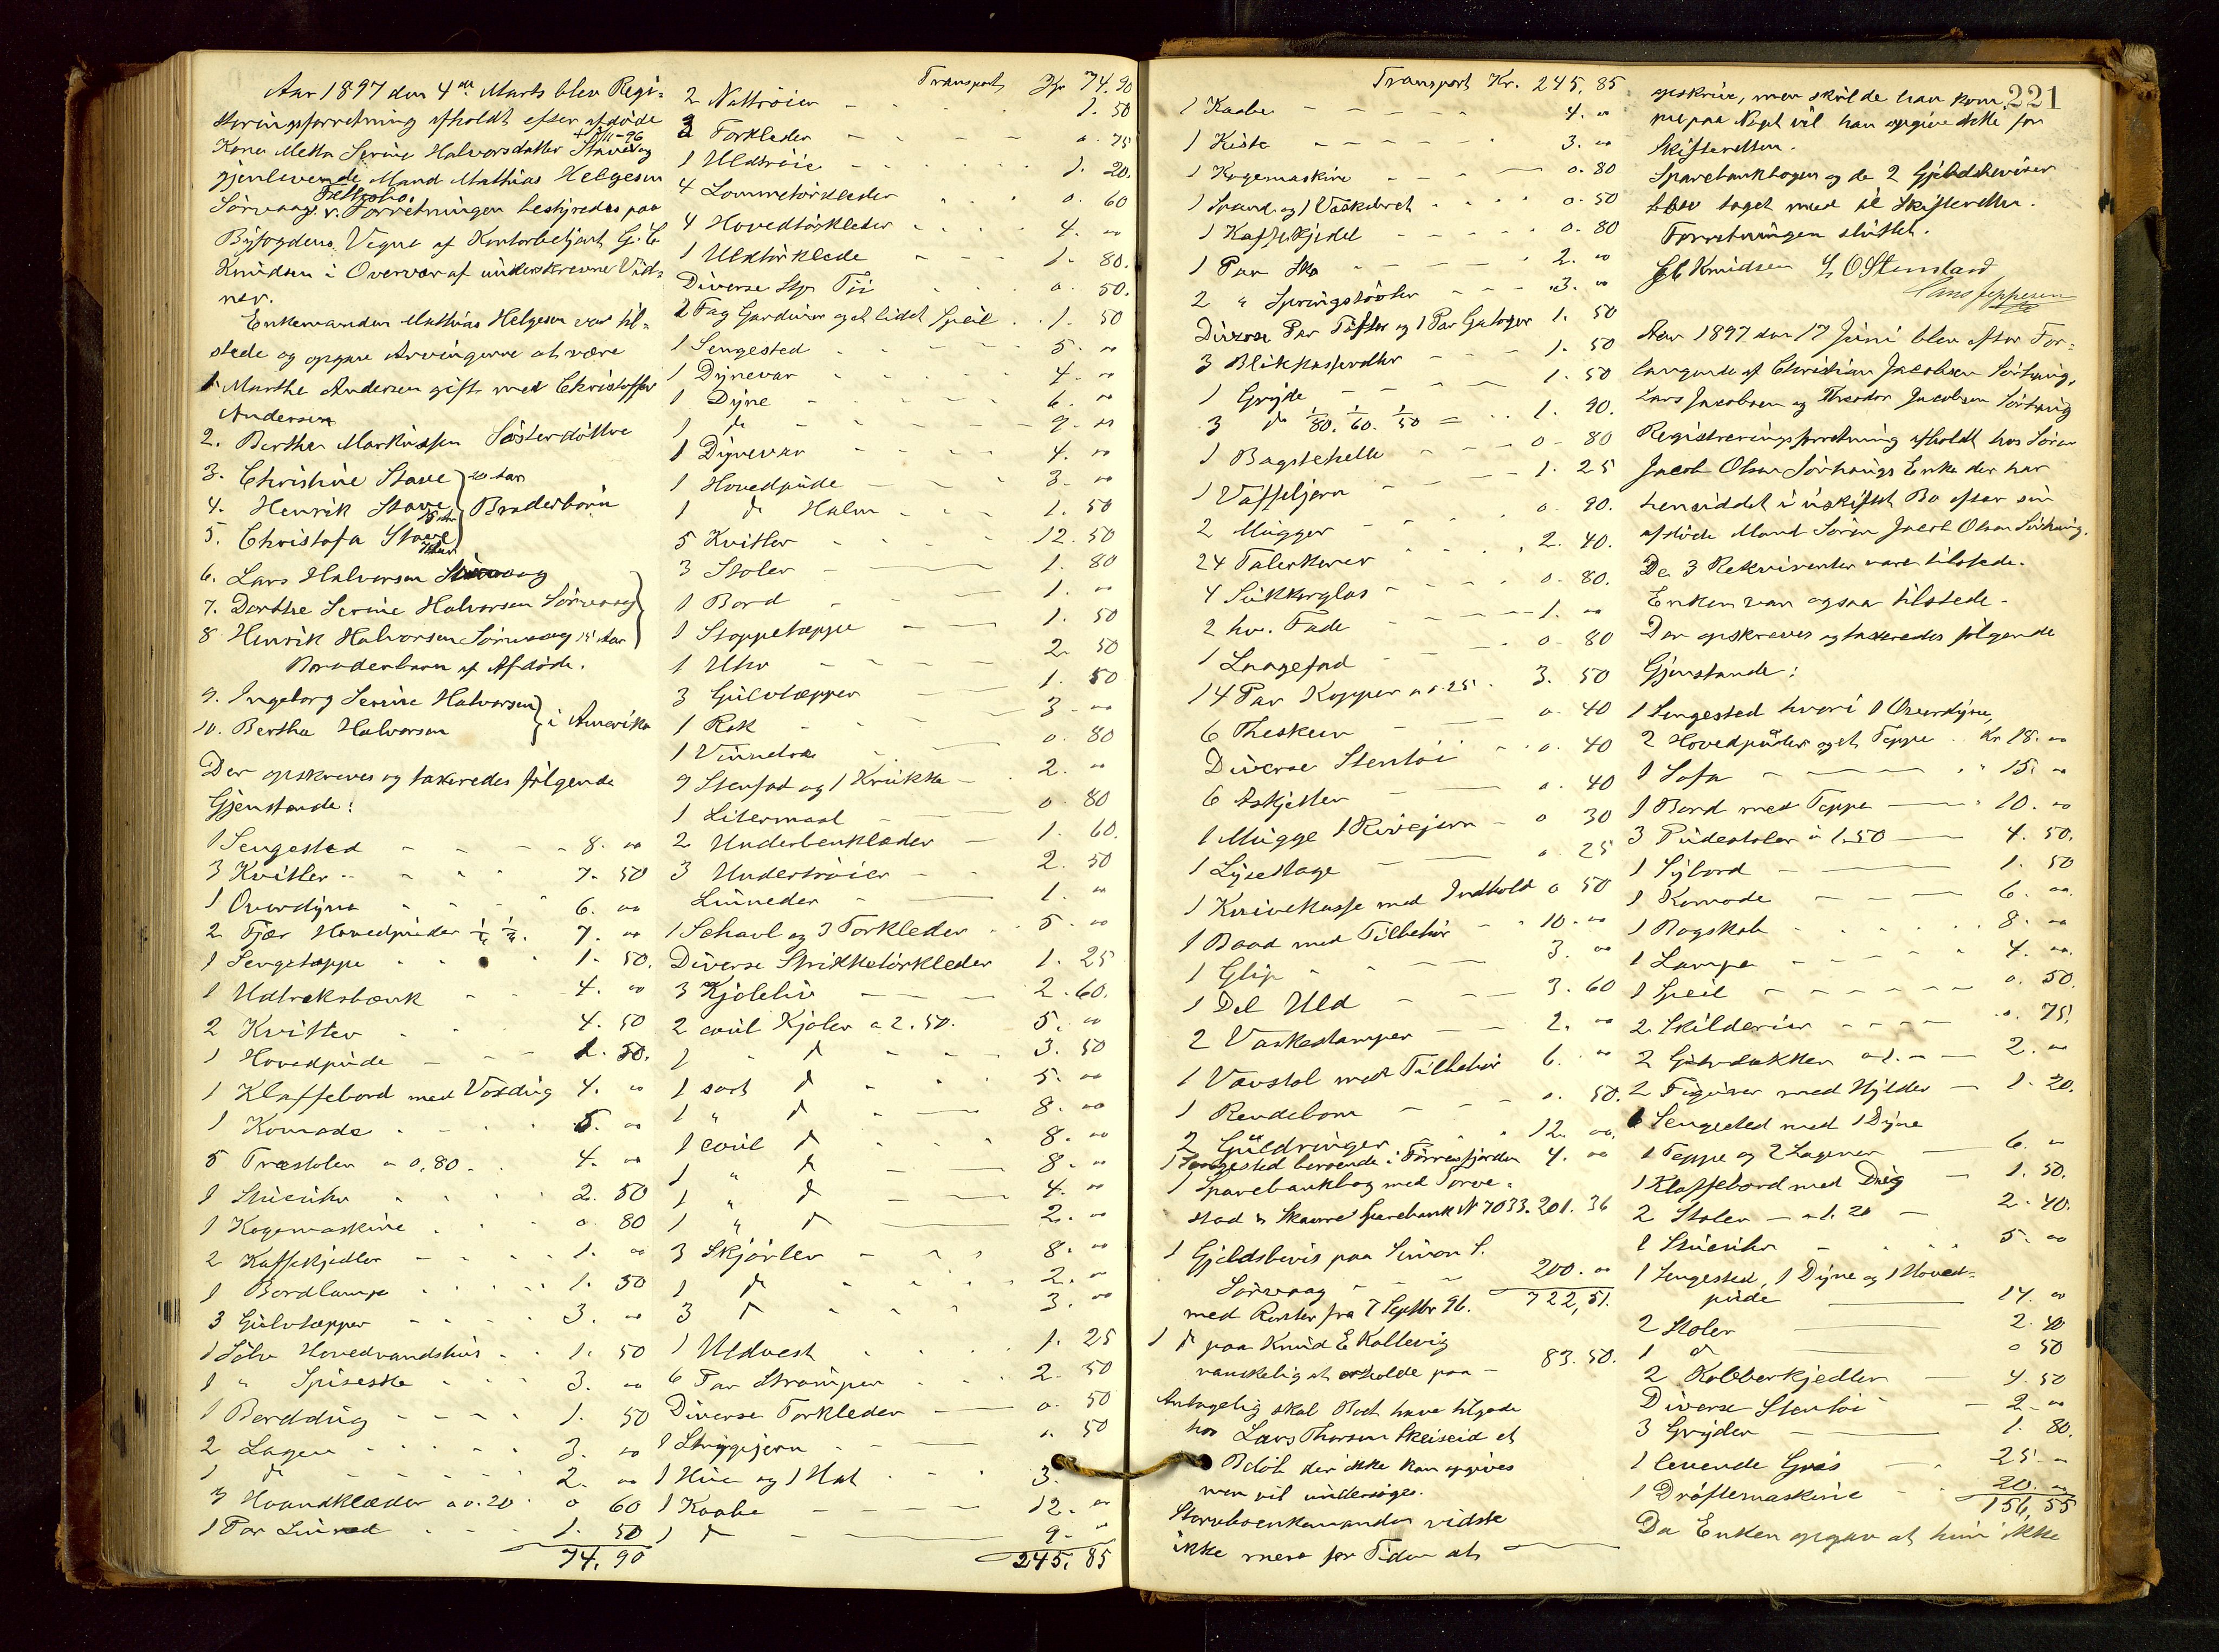 Aar 1897 den 4de Marts blev Regi-
streringsforretning afholdt efter afdöde
+ 5/11-96
Kone Metta Serine Halvorsdatter Stave og
gjenlevende Mand Mathias Helgesen
Fællesbo.
Sörvaag. Forretningen bestyredes paa
Byfogdens Vegne af Kontorbetjent G. C.
Knudsen i Overvær af underskrevne Vid-
ner.
Enkemanden Mathias Helgesen var til-
stede og opgav Arvingerne at være
1. Marthe Andersen gift med Christoffer
Andersen
2. Berthe Markussen Sösterdöttre
3. Christine Stave 20 Aar
4. Henrik Stave Broderbörn
5. Christofa Stave
6. Lars Halvorsen
7. Dorthe Serine Halvorsen Sörvaag
8 Henrik Halvorsen Sörvaag 15 Aar
Broderbarn af Afdöde.
9. Ingeborg Serine Halvorsen
10. Bertha Halvorsen i Amerika
Der opskreves og taxeredes fölgende
Gjenstande:
1 Sengested - - - 8. "
3 Kvitler - - - 7. 50
1 Overdyne - - - 6. "
2 Fjær Hovedpuder 7. "
1 Sengetæppe 1. 50.
1 Udtræksbænk - - 4. "
2 Kvitler - - 4. 50
1 Hovedpude - - - 1. 50.
1 Klaffebord med Voxdug 4. "
1 Komode - - - 5. "
5 Træstoler a 0,80 - 4. "
1 Stueuhr - - - 2. 50
1 Kogemaskine - - 0. 80
2 Kaffekjedler - - - 1. "
1 Bordlampe - - - 1. 50
3 Gulvtæpper - - - 3. "
1 Sölv Hovedvandshus - - 1. 50
1 " Spiseske - - - 3. "
1 Borddug - - - 1. 50
2 Lagen - - - 3. "
1 do - - - 2. "
3 Haandklæder a 0.20 0 60
1 Par - - - 1. 50
74. 90
Transport Kr 74.90
2 Nattröier - - 1. 50
2 Forklæder - - 0. 75
1 Uldtröie - - 1. 20.
4 Lommetörklæder - - 0. 60
4 Hovedtörklæder - - 4. "
1 Uldtörklæde - - 1. 80.
Diverse Töi - - 0. 50.
2 Fag Gardiner og et lidet Speil - 1. 50
1 Sengested - - 5. "
1 Dynevar - - 4. "
1 Dyne - - 6. "
1 do - - 9. "
1 Dynevar - - 4. "
1 Hovedpude - - 3. "
1 do Halm - - 1. 50
5 Kvitler - - 12. 50
3 Stoler - - 1. 80
1 Bord - - 1. "
1 Stoppetæppe - - 1. 50
1 Uhr - - 2. 50
3 Gulvtæpper - - 1. 50
1 Rok - - 3. "
1 - - 0. 80
9 Stenfad og 1 Krukke - 2. "
1 Litermaal - 0. 80
2 Underbenklæder - 1. 60.
3 Undertröier - - 2. 50
- - 1. "
1 Schavl og 3 Torklæder - 5. "
Diverse Strikketörklæder 1. 25
3 Kjoleliv - - 2. 60.
2 coul Kjoler a 2.50. 5. "
1 " do - - 3. 50
1 sort do - - 5. "
1 " do - - 8. "
1 coul do - - 8. "
1 " do - - 8. "
1 " do - - 4. "
1 " do - - 2. "
3 Skjörter - - 8. "
1 do - - 2. "
3 do - - 3. "
1 Uldvest - - 1. 25
6 Par Strömper - - 2. 50
Diverse Torklæder - 0. 50
1 Strygejern - - 0. 50
1 Hue og 1 Hat - - 3.
1 Kaabe - - 12. "
1 do - - 9. "
245. 85
Transport Kr. 245,85
1 Kaabe - - 4. "
1 Kiste - - 3. "
1 Kogemaskine - - 0. 80
1 Spand og 1 Vaskebret - - 0. 50
1 Kaffekjedel - - 0. 80
1 Par Sko - - 2. "
2 " Springstövler - - 3. "
Diverse Par Töfler og 1 Par Galoger 1. 50
3 - - 1. 50
1 Gryde - - 1. 50
3 do 1/80. 1/60. 1/50 = - 1. 90.
1 Bagstehelle - - 0. 80
1 Vaffeljern - - 1. 25
2 Mugger - - 0. 90.
24 Talerkener - - 2. 40.
4 Sukkerglas - - 0. 80.
2 hv. Fade - - 1. "
1 Laagefad - - 0. 80
14 Par Kopper a 0.25 - 3. 50
6 Theskeer - - 0. 40
Diverse Stentöi - - 0. 40
6 - - 0. 40
1 Mugge 1 Rivejern - 0 30
1 Lysestage - - 0. 25
1 Knivekasse med Indhold 0 50
1 Baad med Tilbehör - 10. "
1 Glip - - 3. "
1 Del Uld - - 3. 60
2 Vaskestamper - - 2. "
1 Vævstol med Tilbehör 6. "
1 Rendebom - - 0. 50.
2 Guldringer - - 12. "
1 Sengested beroende i Förresfjorden 4. "
1 Sparebankbog med Torve-
stad & Skaare Sparebank No 7033. 201. 36
1 Gjeldsbevis paa Simon S.
Sörvaag - - 200. "
722,51.
med Renter fra 7 Septbr 96.
1 do paa Knud E Kallevig
vanskelig at erholde paa - 83. 50.
Antagelig skal Boet have tilgode
hos Lars Thorsen Skeiseid et
Belöb der ikke kan opgives
men vil undersöges.
Størvboenkemanden vidste
ikke mere for Tiden at
221
opskrive, men skulde han kom-
me paa Noget vil han opgive dette for
Skifteretten.
Sparebankbogen og de 2 Gjeldsbeviser
blev taget med til Skifteretten.
Forretningen sluttet.
G C Knudsen L. O Stensland
Hans Jeppesen
Aar 1897 den 17 Juni blev efter For-
langende af Christian Jacobsen Sörhaug,
Lars Jacobsen og Theodor Jacobsen Sörhaug
Registreringsforretning afholdt hos Sören
Jacob Olsen Sörhaugs Enke der har
hensiddet i uskiftet Bo efter sin
afdöde Mand Sören Jacob Olsen Sörhaug.
De 3 Rekvirenter vare tilstede.
Enken var ogsaa tilstede.
Der opskreves og taxeredes fölgende
Gjenstande:
1 Sengested hvori 1 Overdyne,
2 Hovedpuder og et Teppe - Kr 18. "
1 Sofa - - 15. "
1 Bord med Teppe - 10. "
3 Pudestoler a 1.50 - 4. 50.
1 Sybord - - 1. 50
1 Komode - - 6. "
1 Rogskab - - 8. "
1 Lampe - - 4. "
1 Speil - - 0. 50.
2 Skilderier - - 0. 75.
2 a 1. " - 2. "
2 Figurer med Hylder - 1. 20.
1 Sengested med 1 Dyne
1 Teppe og 2 Lagener - 6. "
1 Klaffebord med Dug - 1. 50.
2 Stoler - a 1.20 - 2. 40.
1 Stueuhr - - 5. "
1 Sengested, 1 Dyne og 1 Hoved-
pude - 14. "
2 Stoler - 2. 40
1 do - 0 50
2 Kobberkjedler - 4. 50
Diverse Stentöi - 2. "
3 Gryder - 1. 80.
1 levende Gris - 25. "
1 Dröftemaskine - 20. "
156,55
Da Enken opgav at hun ikke